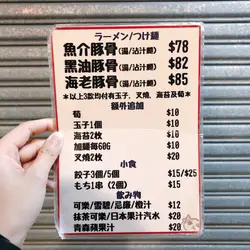 ラーメン/つけ麺
魚介豚骨(湯/沾汁麵) $78
黑油豚骨(湯/沾汁麵) $82
海老豚骨(湯/沾汁麵) $85
*以上3款均付有玉子, 叉燒, 海苔及筍*
額外追加
筍 $10
玉子1個 $10
海苔2枚 $10
加麵每60G $10
叉燒2枚 $20
小食
餃子3個/5個 $15/$25
もち1串 (2個) $15
飲み物
可樂/雪碧/忌廉/橙汁 $12
抹茶可樂/日本果汁汽水 $20
青森蘋果汁 $20